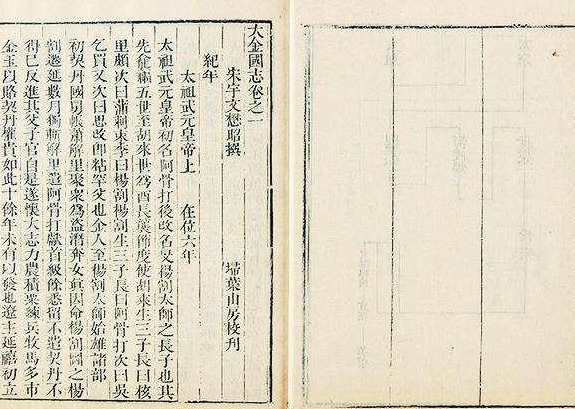 大金國志卷之一
宋宇文懋昭撰 埽葉山房校刊
紀年
太祖武元皇帝上 在位六年
太祖武元皇帝初名阿骨打後改名旻楊割太師之長子也其
先龕福五世至胡來世為酋長襲節度使胡來生三子長曰核
里頗次曰蒲剌束李曰楊割楊割生三子長曰阿骨打次曰吳
乞買又次曰思改即粘罕父也金人至楊割太師始雄諸部
初契丹國舅帳蕭解里聚眾為盜潛奔女真因命楊割圖之楊
割遷延數月獨斬解里遣阿骨打獻首級餘悉留不遣契丹不
得已反進其父子官自是遂懷大志力農積粟練兵牧馬多市
金玉以賂契丹權貴如此十餘年未有以發也遼主延禧初立